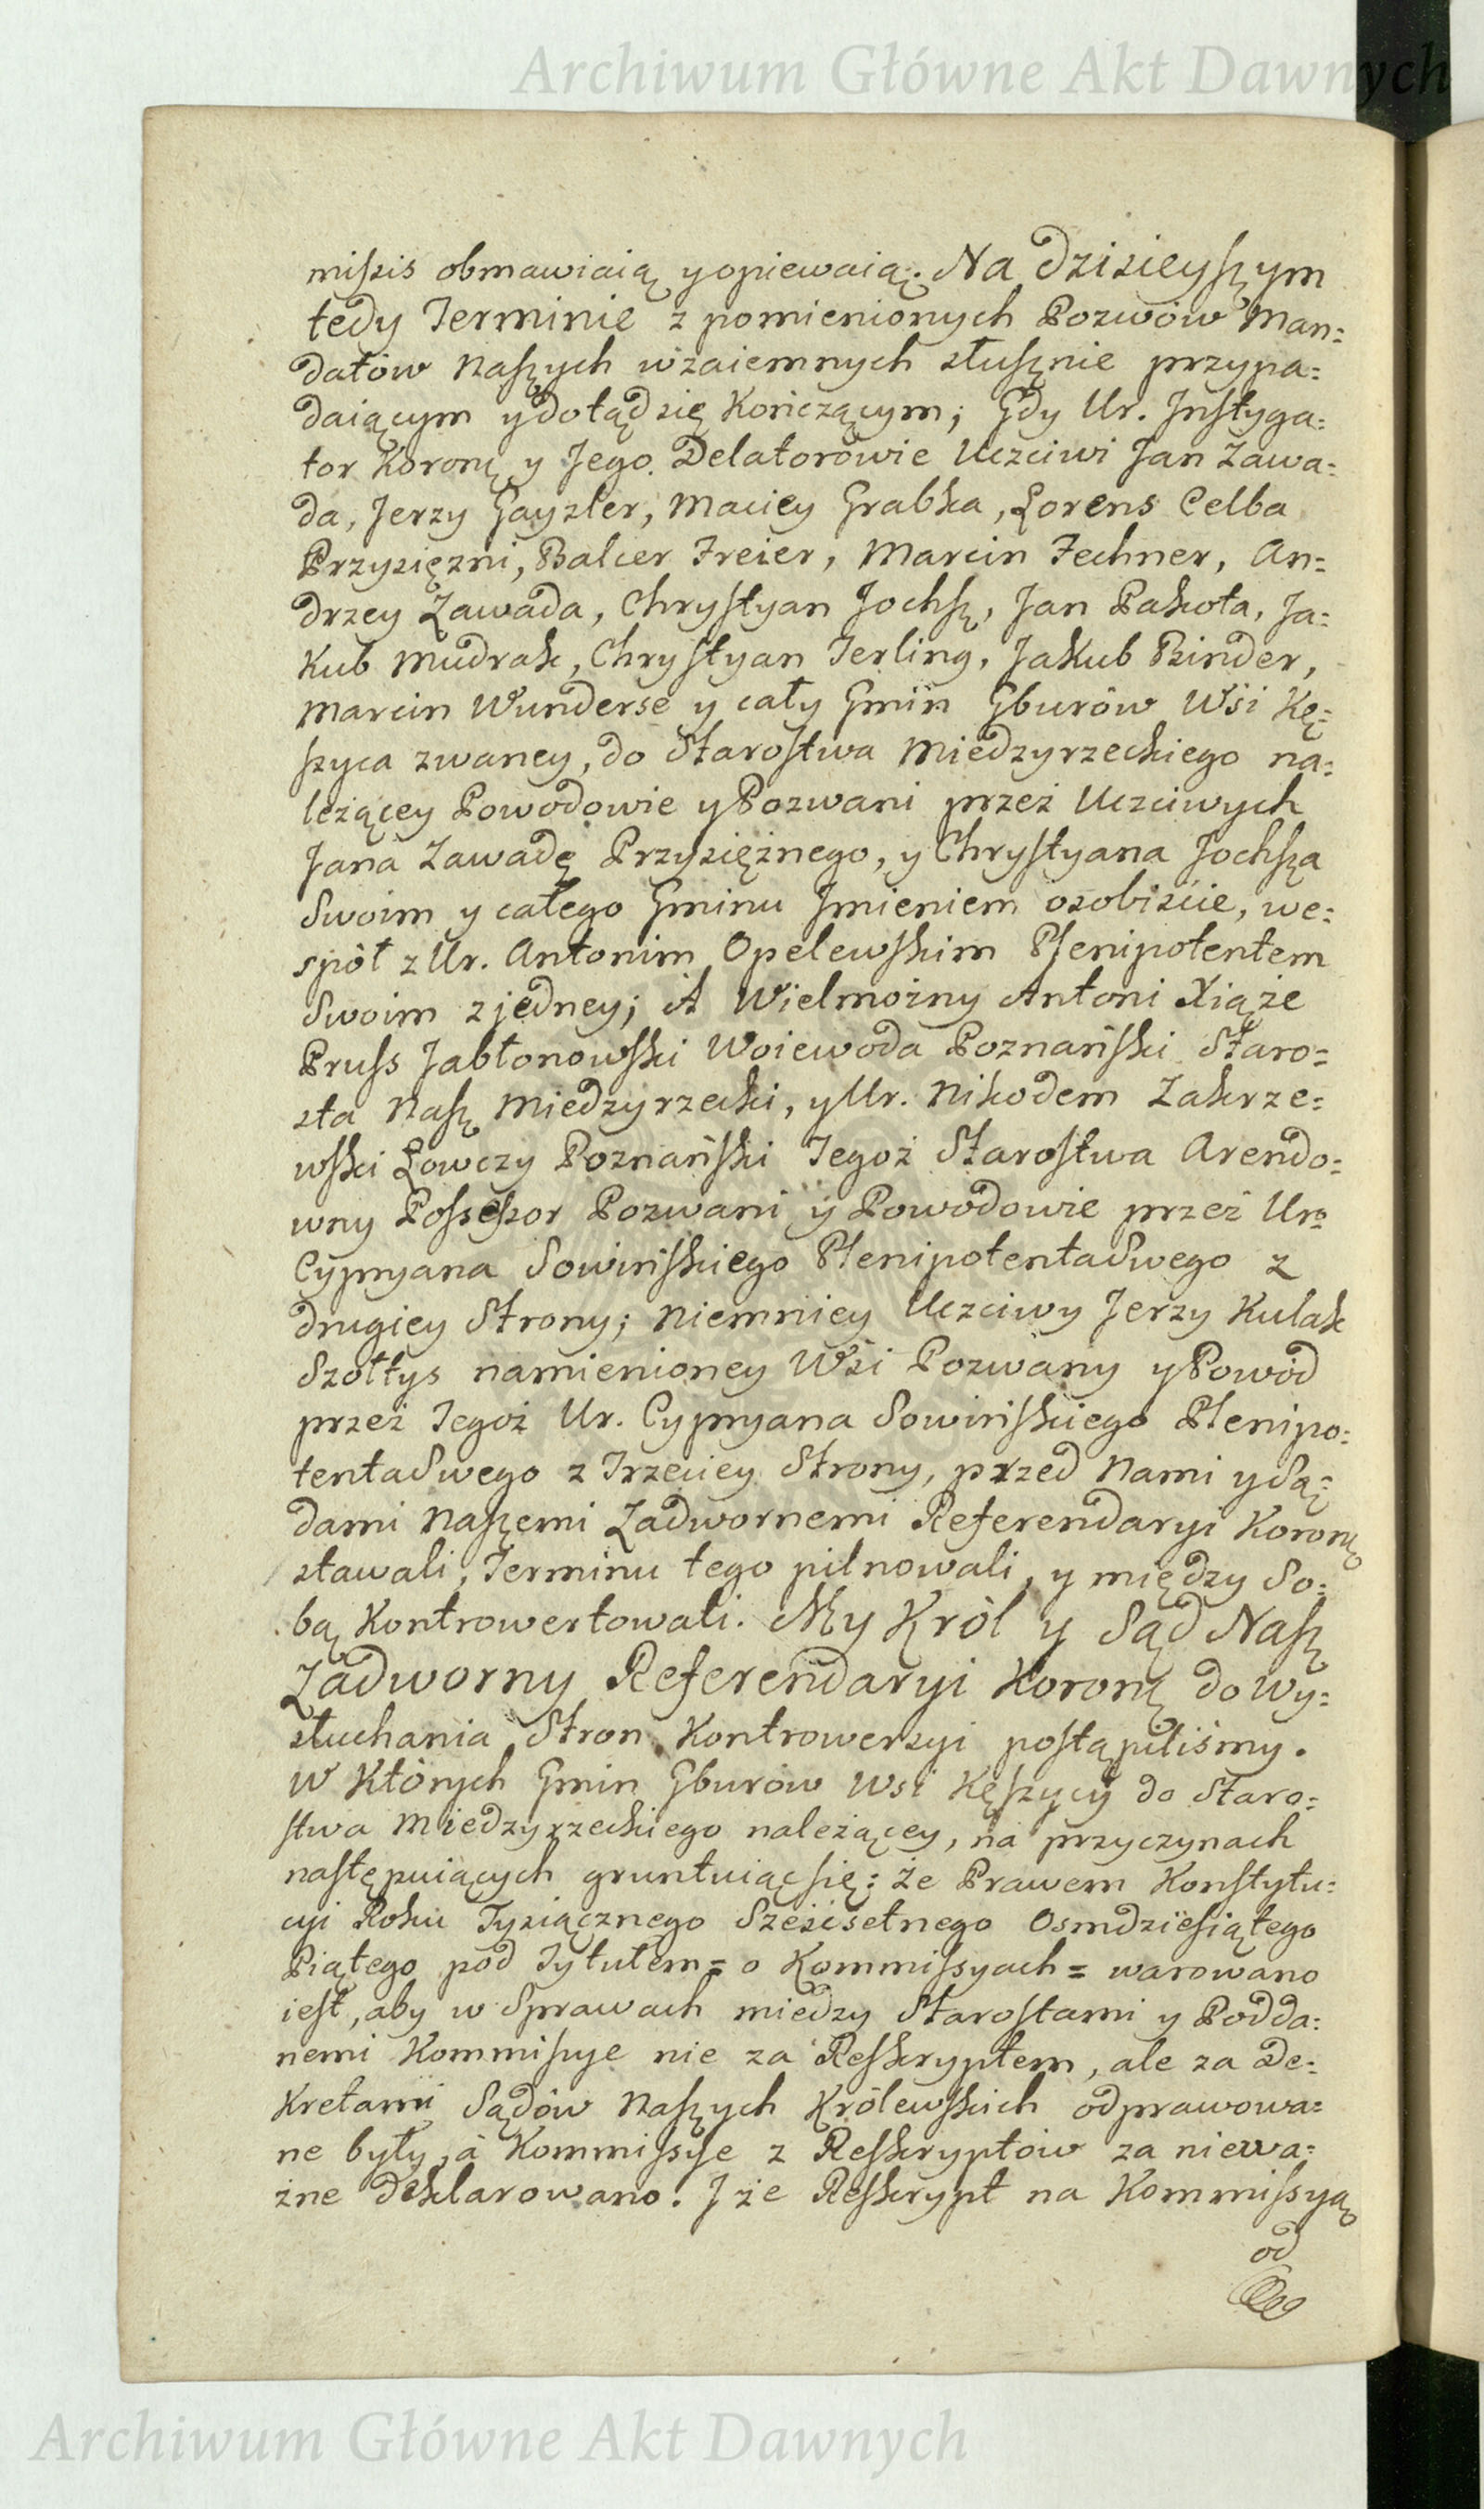 Archiwum Główne Akt Dawnych
missis obmawiaią y opiewaią. Na dzisieyszym
tedy Terminie z pomienionych Pozwów Man=
datów Naszych wzaiemnych słusznie przypa=
daiącym y dotąd się Kończącym; Gdy Ur. Jnstyga=
tor Koronę y Jego Delatorowie Uczciwi Jan Zawa=
da, Jerzy Gayzler, Maciey Grabka, Lorens Celba
Przysięzni, Balcer Freier, Marcin Fechner, An=
drzey Zawada, Chrystyan Jochsz, Jan Pakota, Ja=
kub Mudrak, Chrystyan Terling, Jakub Binder,
Marcin Wunderse y cały Gmin Gburów Wsi Kę=
szyca zwaney, do Starostwa Miedzyrzeckiego na=
leżącey Powodowie y Pozwani przez Uczciwych
Jana Zawadę Przysiężnego, y Chrystyana Jochsza
Swoim y całego Gminu Jmieniem osobiście, we=
spół z Ur. Antonim Opelewskim Plenipotentem
Swoim z jedney; A Wielmożny Antoni Xiąże
Pruss Jabłonowski Woiewoda Poznański Staro=
sta Nasz Miedzyrzecki, y Ur. Nikodem Zakrze=
wski Łowczy Poznański Tegoż Starostwa Arendo=
wny Possessor Pozwani y Powodowie przez Uro
Cypryana Sowińskiego Plenipotenta Swego z
drugiey Strony; Niemniey Uczciwy Jerzy Kulak
Szołtys namienioney Wsi Pozwany y Powód
przez Tegoż Ur. Cypryana Sowińskiego Plenipo=
tenta Swego z Trzeciey Strony, przed Nami y Są=
dami Naszemi Zadwornemi Referendaryi Koronę
stawali, Terminu tego pilnowali, y między So=
bą Kontrowertowali. My Król y Sąd Nasz
Zadworny Referendaryi Koronę do Wy=
słuchania Stron Kontrowersyi postąpiliśmy.
W Których Gmin Gburów Wsi Kęszycy do Staro=
stwa Miedzyrzeckiego należącey, na przyczynach
następuiących gruntuiąc się: że Prawem Konstytu=
cyi Roku Tysiącznego Sześćsetnego Osmdziesiątego
Piątego pod Tytułem = o Kommissyach = warowano
iest, aby w Sprawach miedzy Starostami y Podda=
nemi Kommissye nie za Reskryptem, ale za De=
kretami Sądów Naszych Królewskich odprawowa=
ne były, à Kommissye z Reskryptów za niewa=
żne deklarowano. J że Reskrypt na Kommissyą
od
Archiwum Główne Akt Dawnych